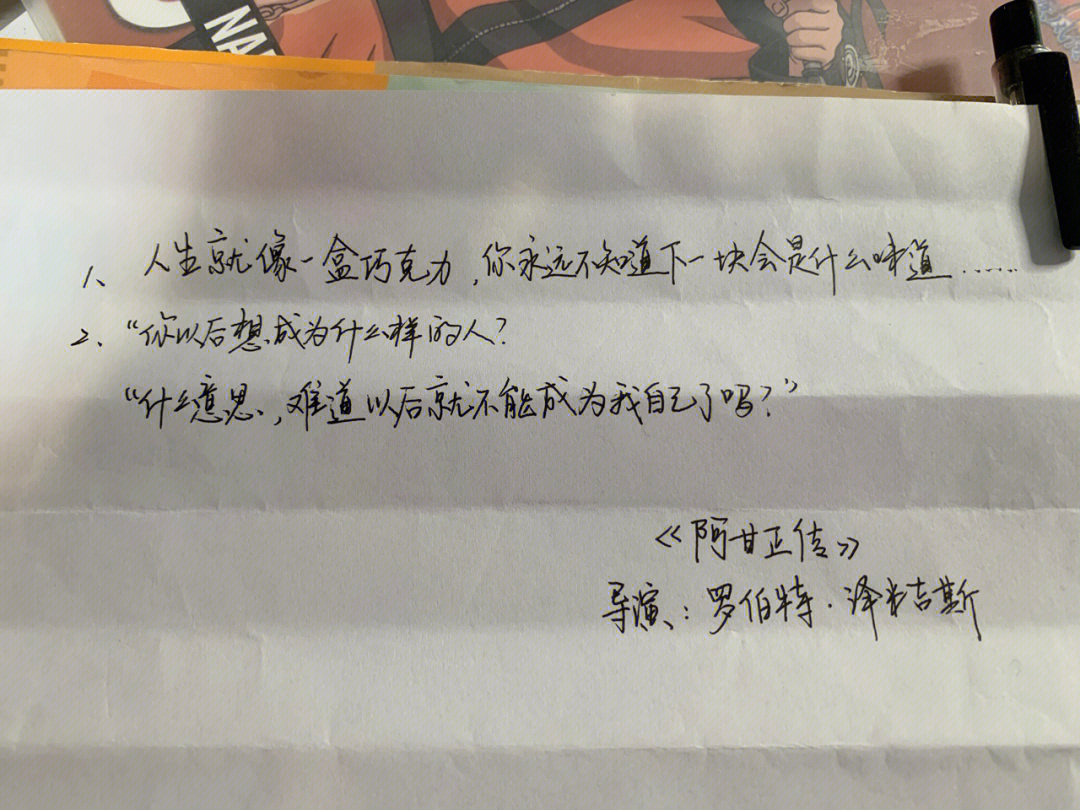 NA
1、人生就像一盒巧克力,你永远不知道下一块会是什么味道……
2、“你以后想成为什么样的人?
“什么意思,难道以后就不能成为我自己了吗?”
《阿甘正传》
导演:罗伯特·泽米吉斯